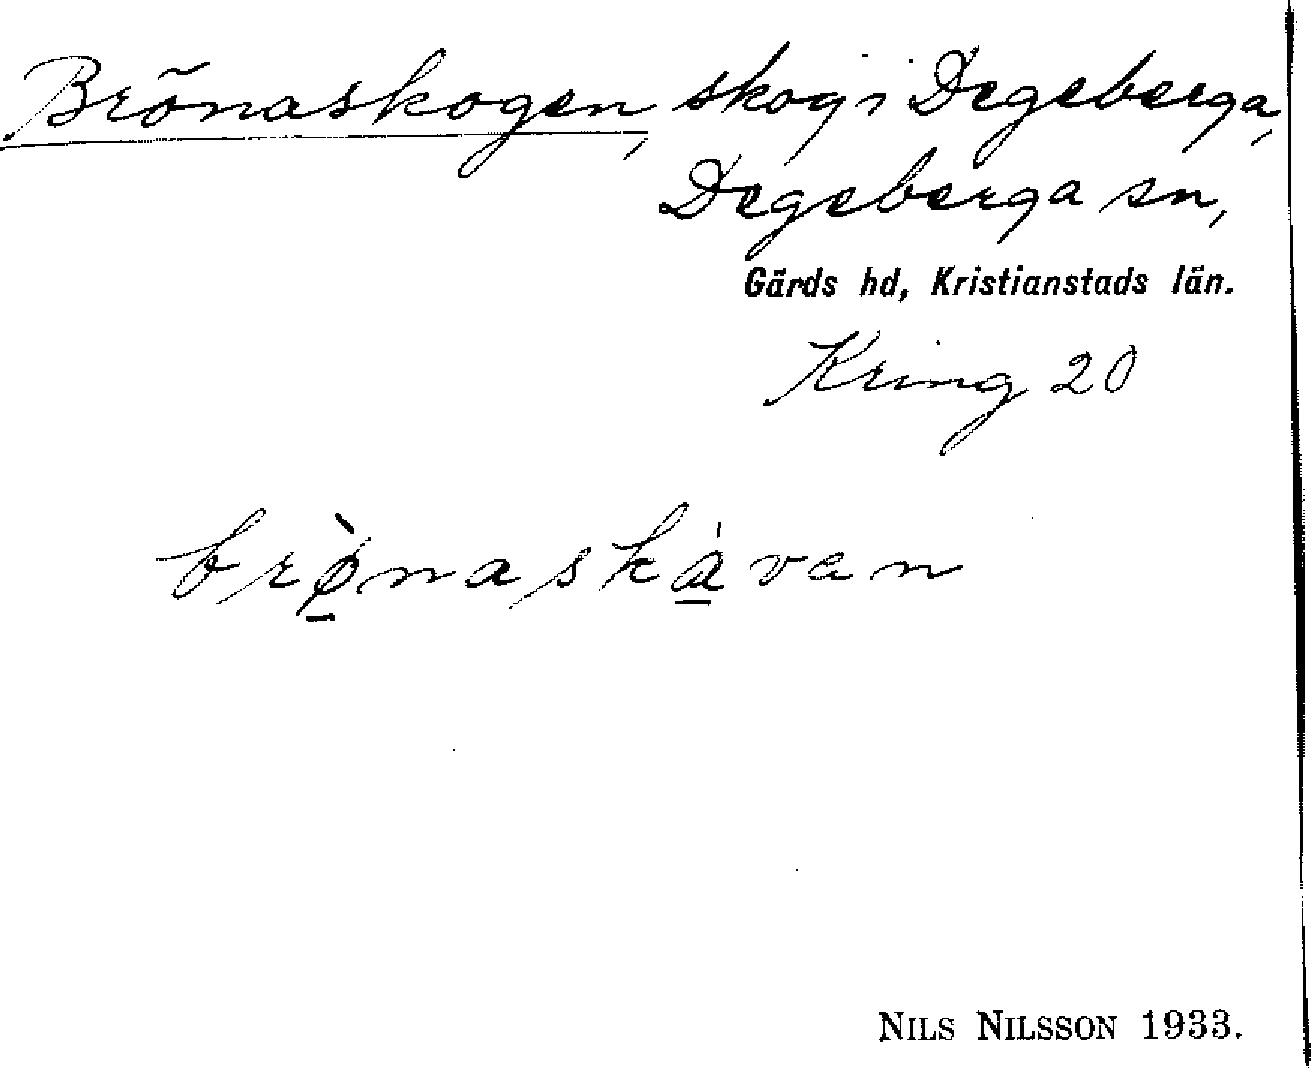 Brönaskogen, skog i Degeberga,
Degeberga sn,
Gärds hd, Kristianstads län.
Kring 20
brø̠̀naskà̠van
NILS NILSSON 1933.